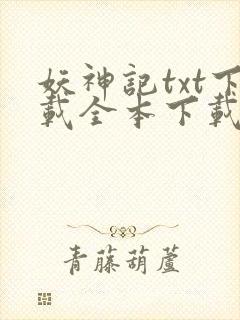 妖神記txt下
載全本下載
青藤葫蘆